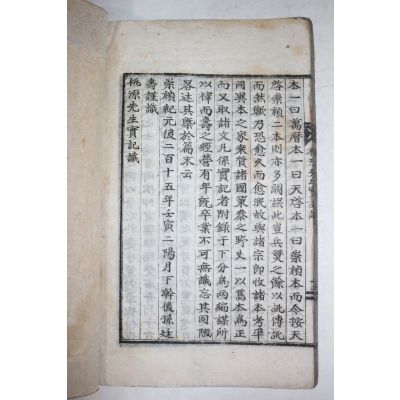 本一曰萬曆本一曰天啓本一曰崇禎本而今按天
啓崇禎二本則亦多闕誤此豈兵燹之餘以訛傳訛
而然歟乃恐愈久而愈泯故與諸宗卽收諸本考準
同異本之家乘質諸國策叅之野史一以萬本爲正
而又取諸文凡係實記者附錄于下分爲兩編謀所
以梓而壽之經營有年旣卒業不可無識忘其固陋
畧述其槩於篇末云
崇禎紀元後二百十五年壬寅二陽月下澣後孫廷
壽謹識
桃源先生實記識